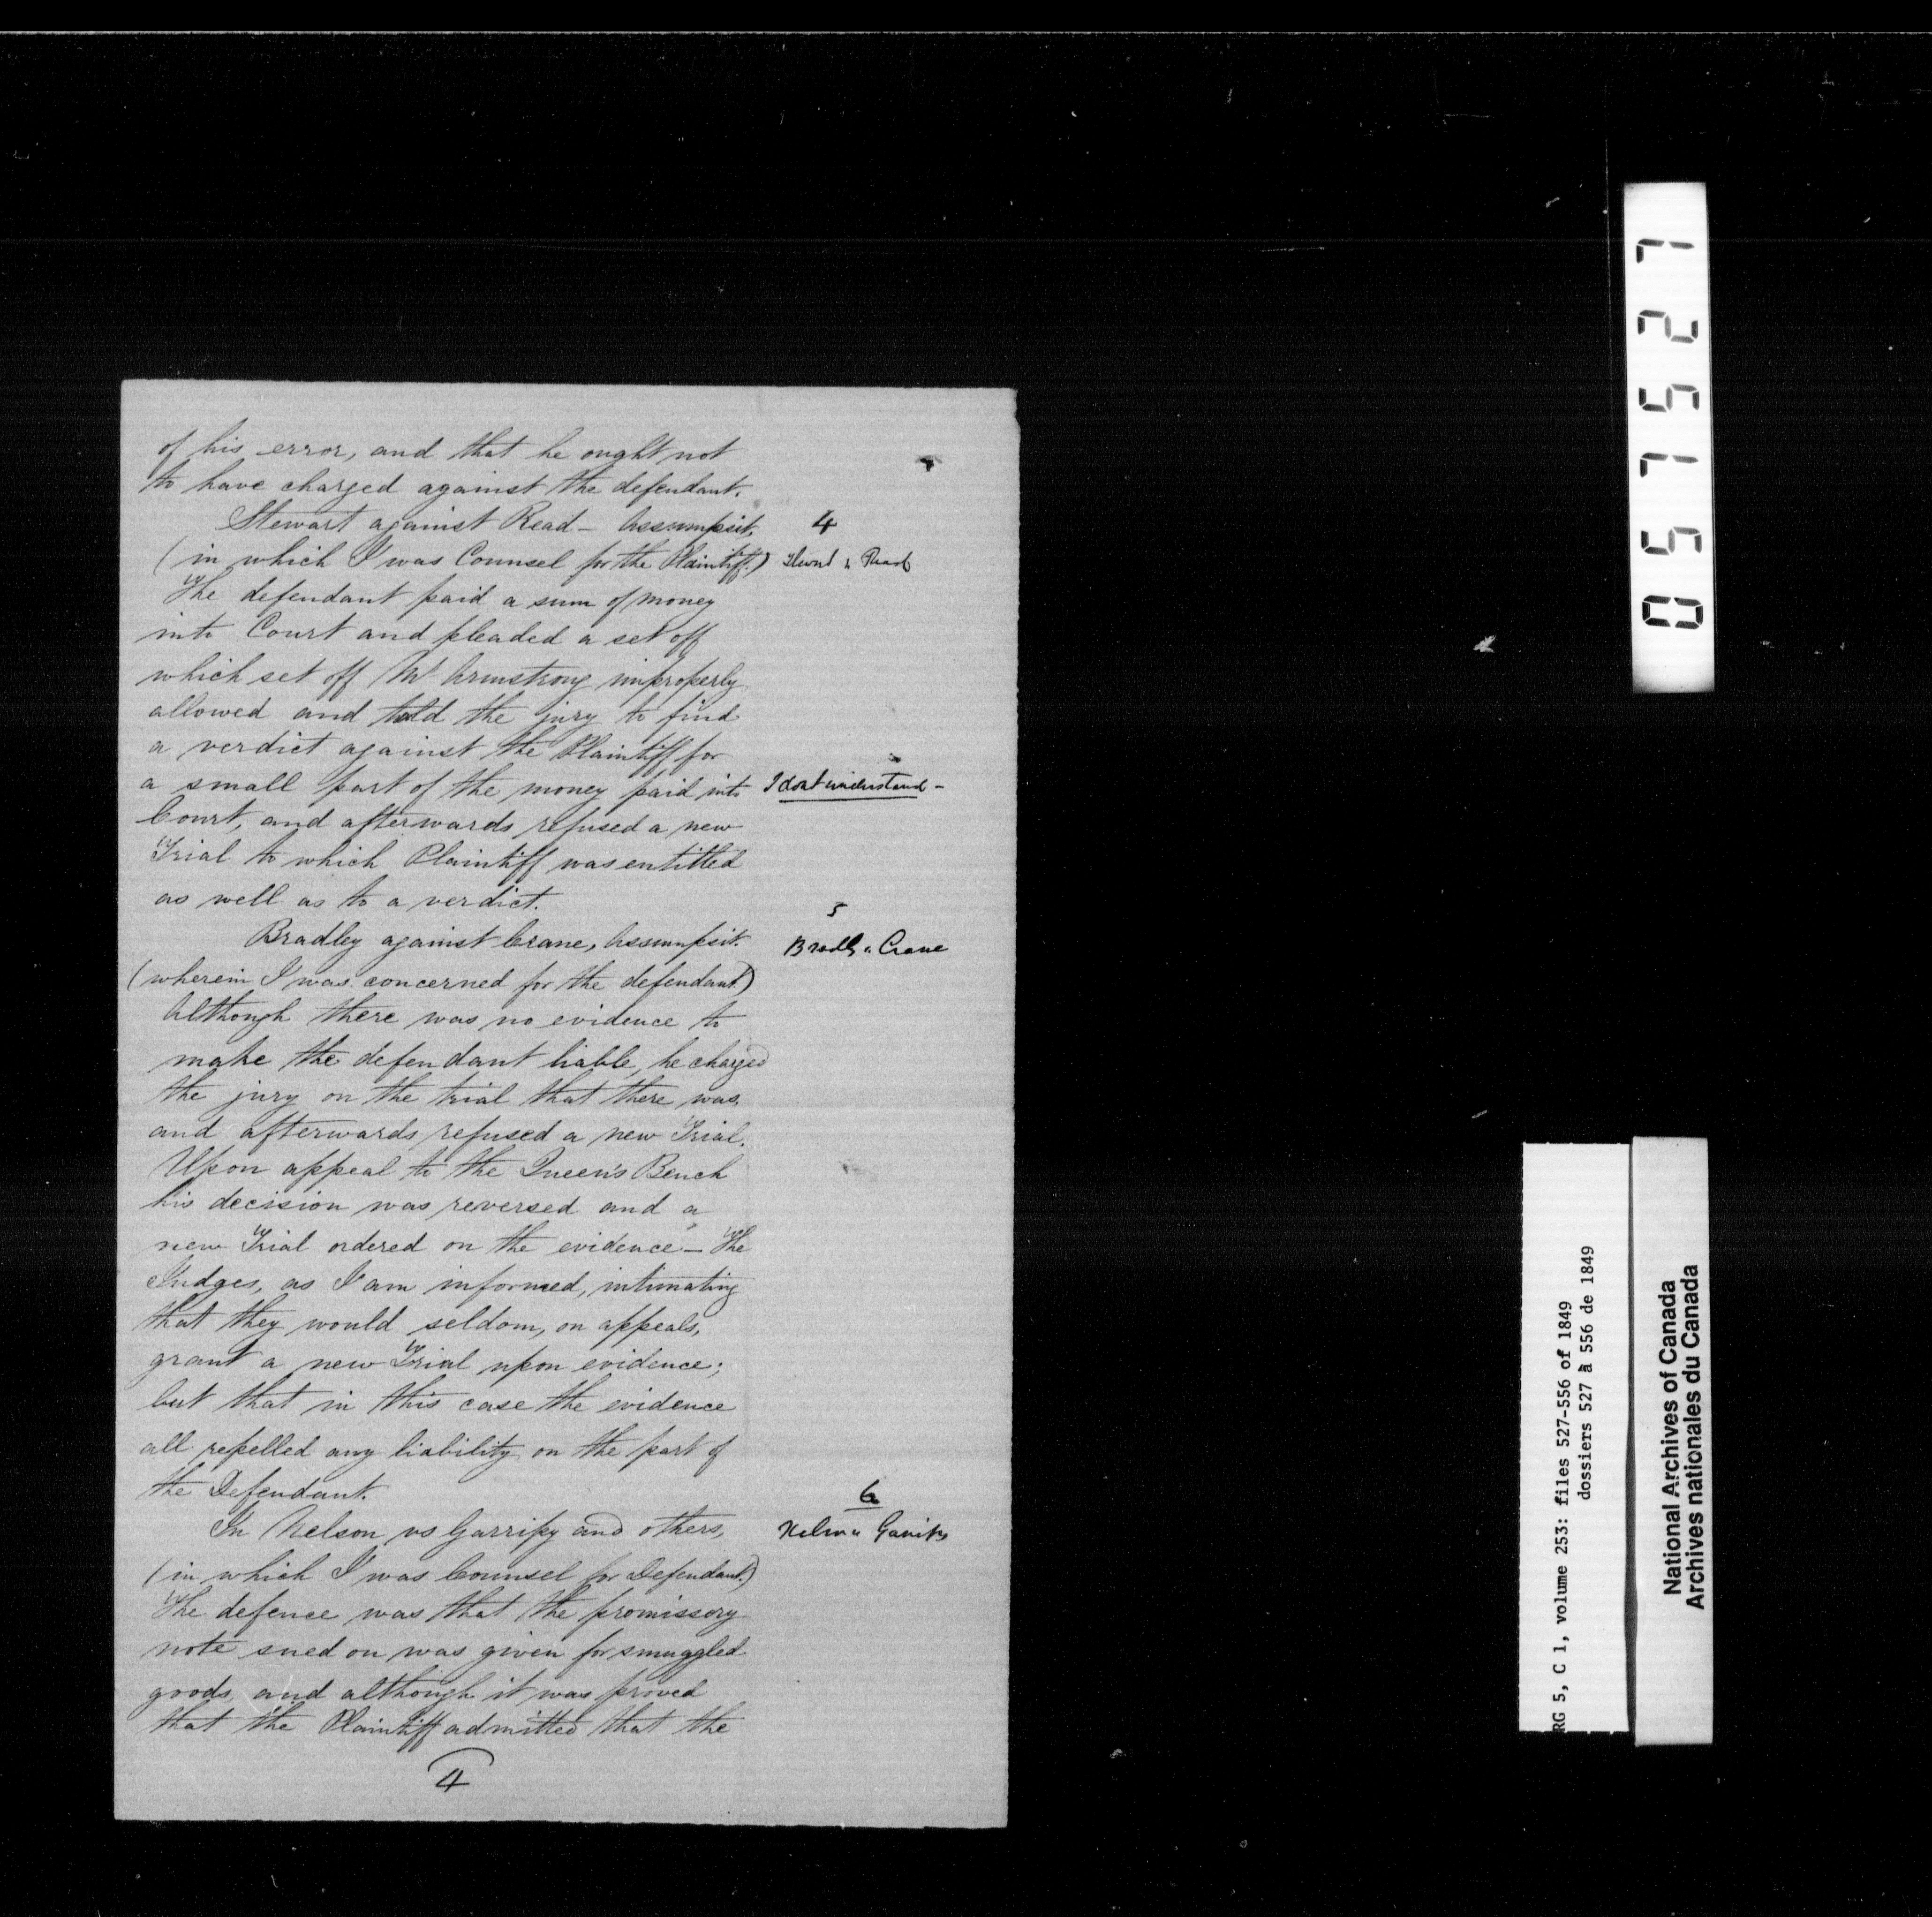 of his error, and that he ought not
to have charged against the defendant.
Stewart against Read - Assumpsit,
4
(in which I was Counsel for the Plaintiff.)
The defendant paid a sum of money
into Court and pleaded a set off
which set off Mr Armstrong improperly
allowed and told the jury to find
a verdict against the Plaintiff for
a small part of the money paid into
I dont understand -
Court, and afterwards refused a new
Trial to which Plaintiff was entitled
as well as to a verdict.
5
Bradley against Crane, Assumpsit.
Bradly v Crane
(wherein I was concerned for the defendant)
Although there was no evidence to
make the defendant liable, he charged
the jury on the trial that there was,
and afterwards refused a new Trial.
Upon appeal to the Queen's Bench
his decision was reversed and a
new Trial ordered on the evidence - The
Judges, as I am informed, intimating
that they would seldom, on appeals,
grant a new Trial upon evidence;
but that in this case the evidence
all repelled any liability on the part of
the Defendant.
6
In Nelson vs Garripy and others,
(in which I was Counsel for Defendant.)
The defence was that the promissory
note sued on was given for smuggled
goods, and although it was proved
that the Plaintiff admitted that the
4
057527
RG 5, C 1, volume 253: files 527-556 of 1849
dossiers 527 à 556 de 1849
National Archives of Canada
Archives nationales du Canada